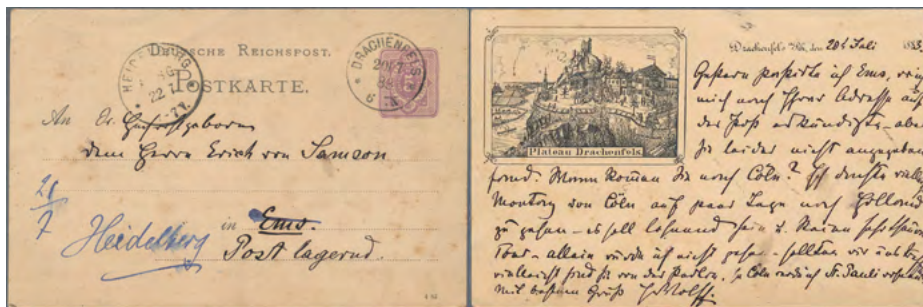 DEUTSCHE REICHSPOST.
POSTKARTE.
HEIDELBURG.
22 7
DRACHENFELS
20 7
6
An Er. Hochwohlgeboren
dem Herrn Erich von Samson
in Ems.
Post lagernd.
21/7
Heidelberg
Plateau Drachenfels.
Drachenfels den 20t Juli
Gestern passirte ich Ems,
mich nach Ihrer Adresse auf
der Post erkundigte - aber
Sie leider nicht angegeben
fand. Wann kommen Sie nach Cöln? Ich denke
Montag von Cöln auf paar Tage nach Holland
zu gehen - es soll lohnend sein u. keine
Tour - allein würde ich nicht gehen - sollten wir
vielleicht sind Sie von der Partie. In Cöln
Mit bestem Gruß JWolff